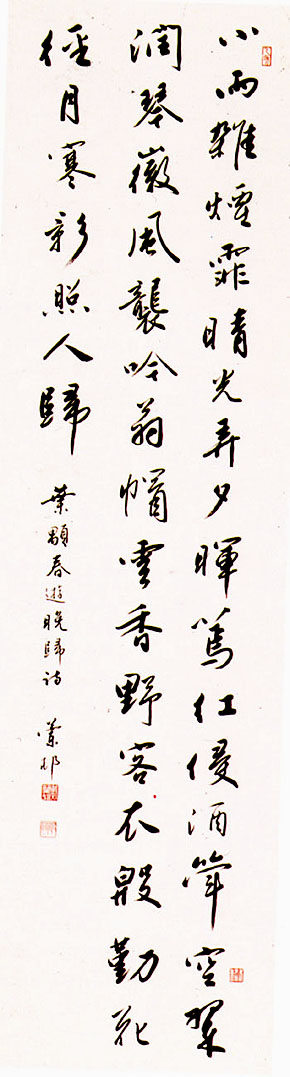 小雨雜煙霏晴光弄夕暉蔫紅侵酒斝空翠
潤琴徽風襲吟翁帽雲香野客衣殷勤花
徑月寒影照人歸
葉顒春遊晚歸詩